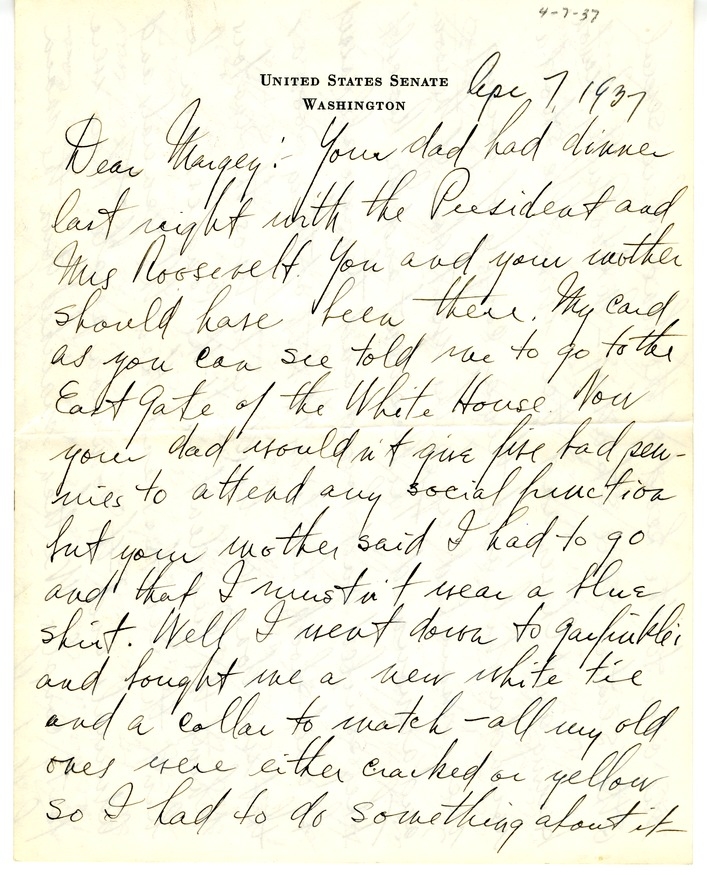 4-7-37
UNITED STATES SENATE
WASHINGTON
Apr 7, 1937
Dear Margey:- Your dad had dinner
last night with the President and
Mrs Roosevelt. You and your mother
should have been there. My card
as you can see told me to go to the
East Gate of the White House. Now
your dad wouldn't give five bad pen-
nies to attend any social function
but your mother said I had to go
and that I mustn't wear a blue
shirt. Well I went down to Garfinkles
and bought me a new white tie
and a collar to match - all my old
ones were either cracked or yellow
so I had to do something about it -